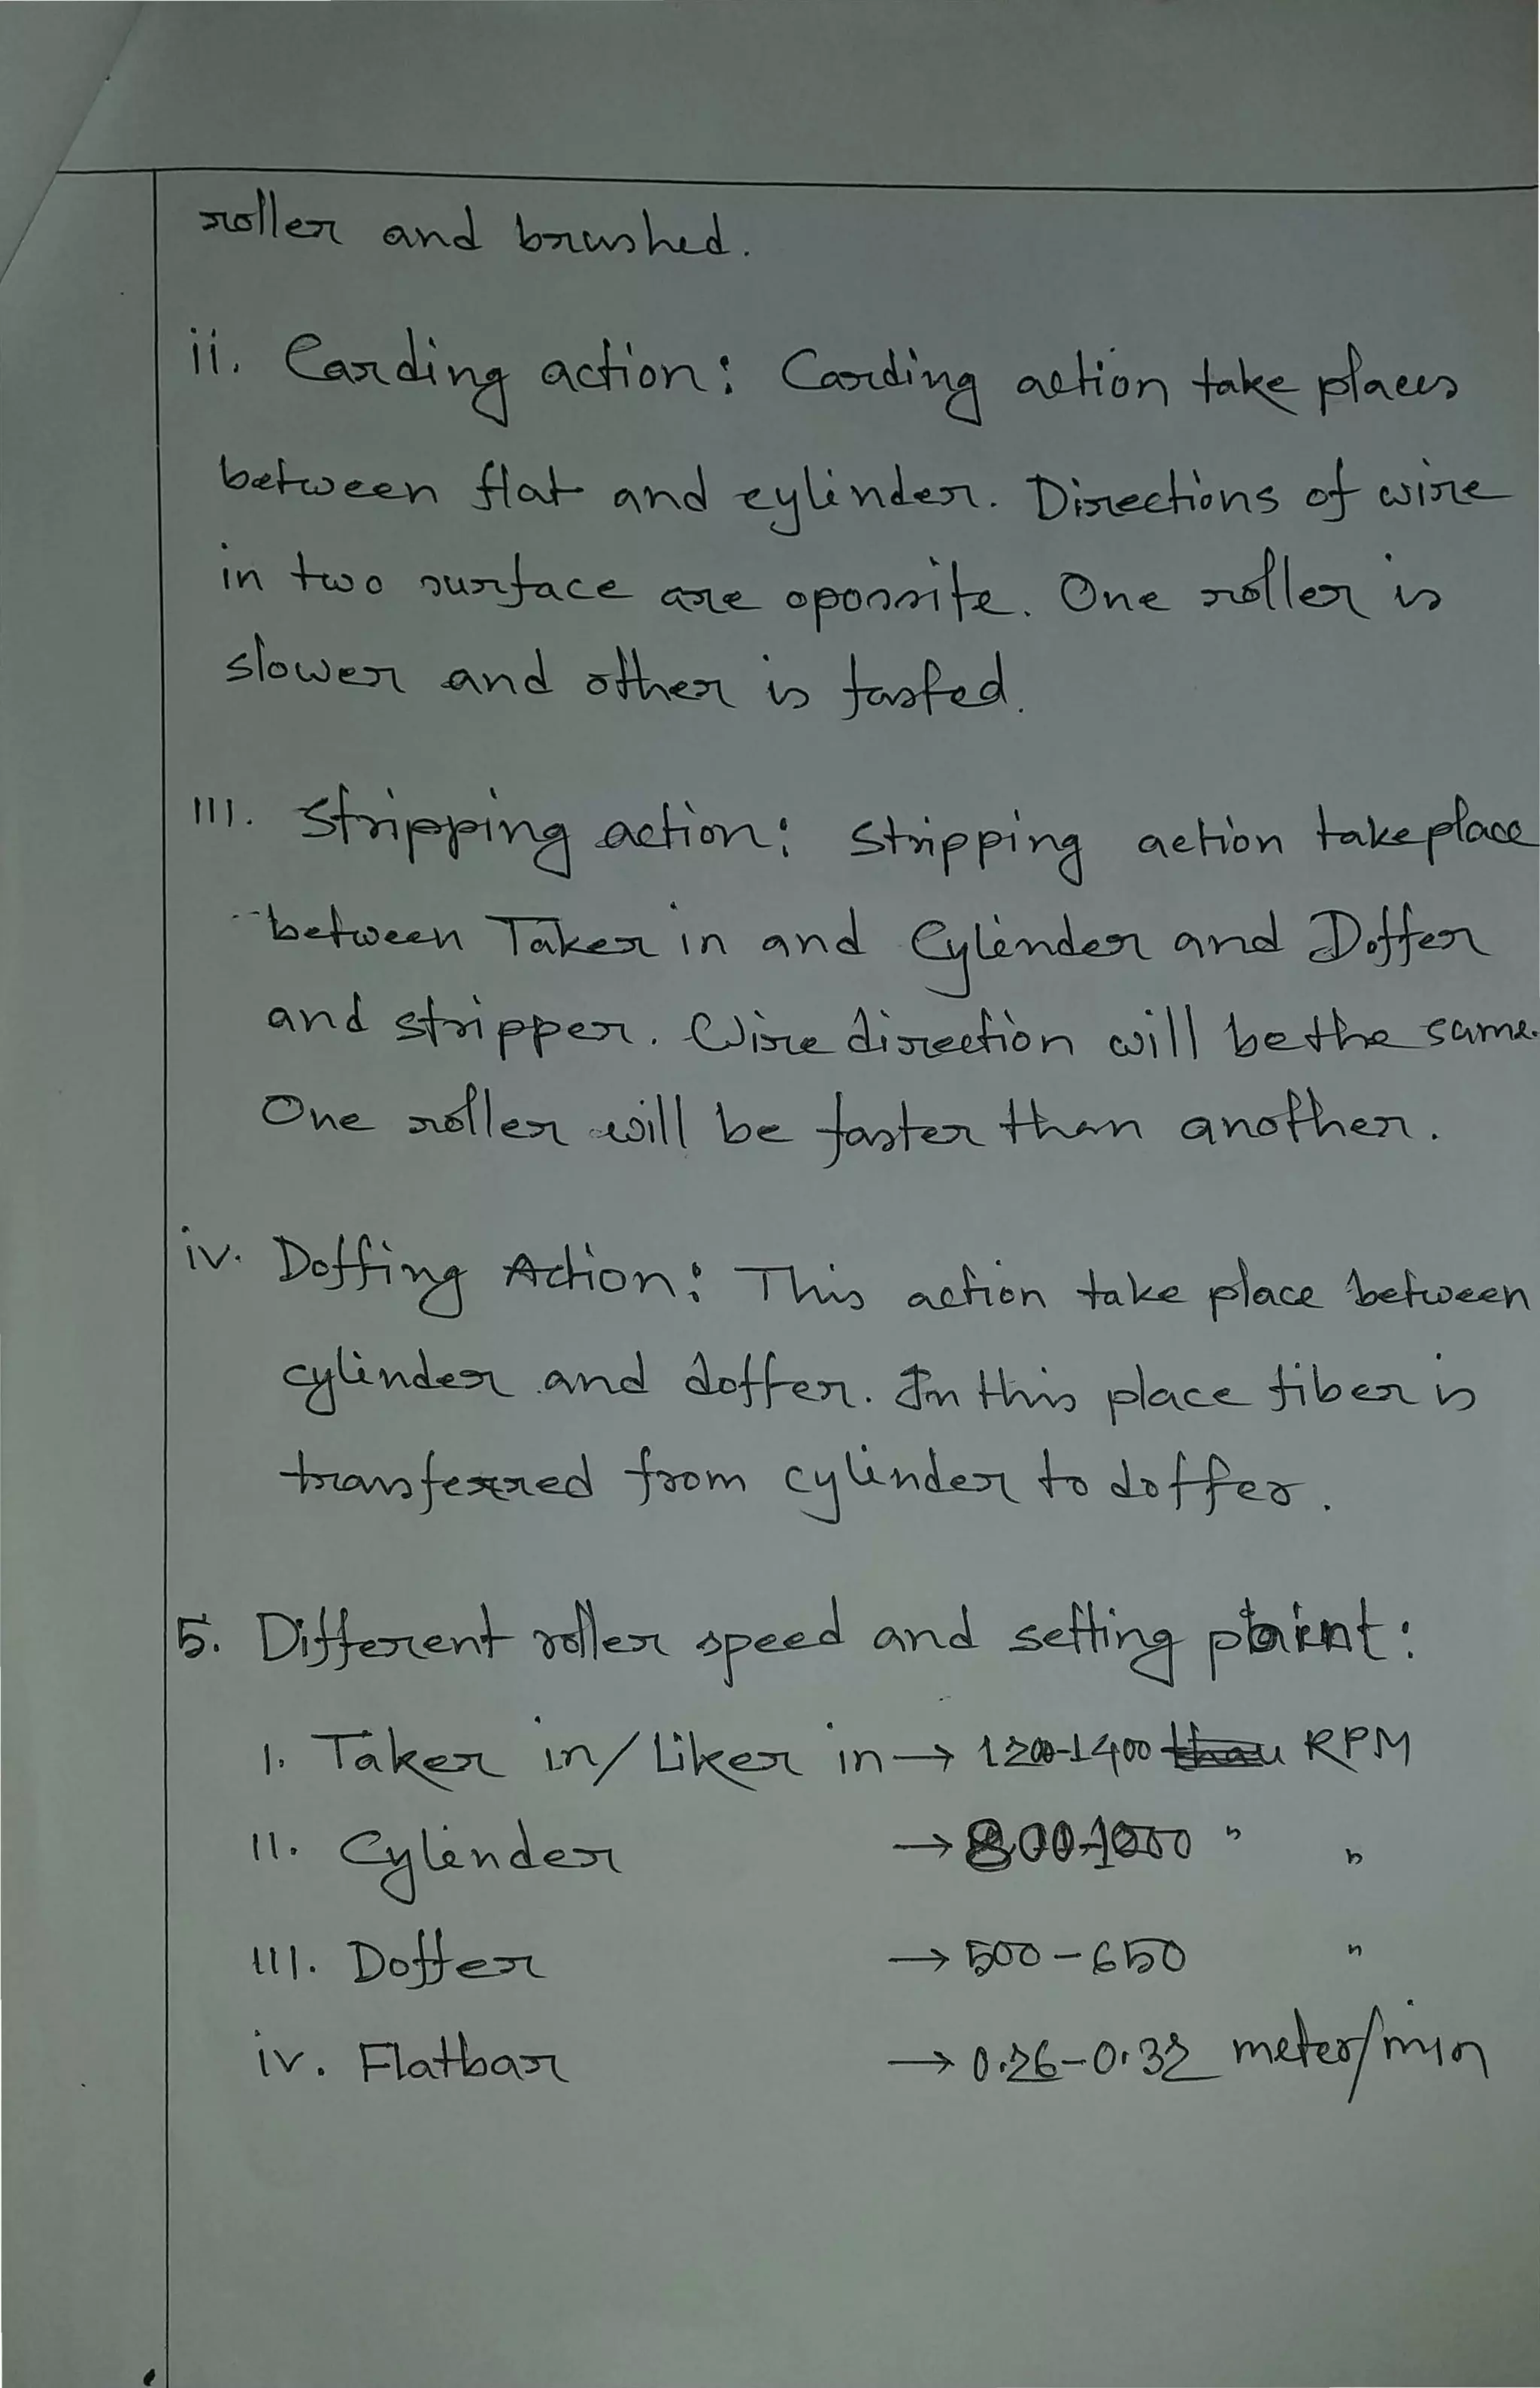 roller and brushed.
ii. Carding action: Carding action take places
between flat and cylinder. Directions of wire
in two surface are oposite. One roller is
slower and other is fasted.
III. Stripping action: Stripping action take place
between Taker in and Cylinder and Doffer
and stripper. Wire direction will be the same.
One roller will be faster than another.
iv. Doffing Action: This action take place between
cylinder and doffer. In this place fiber is
transferred from cylinder to doffer.
5. Different roller speed and setting point:
I. Taker in/Liker in → 1200-1400 RPM
II. Cylinder → 800-1000 " "
III. Doffer → 500-650 "
iv. Flatbar → 0.26-0.32 meter/min